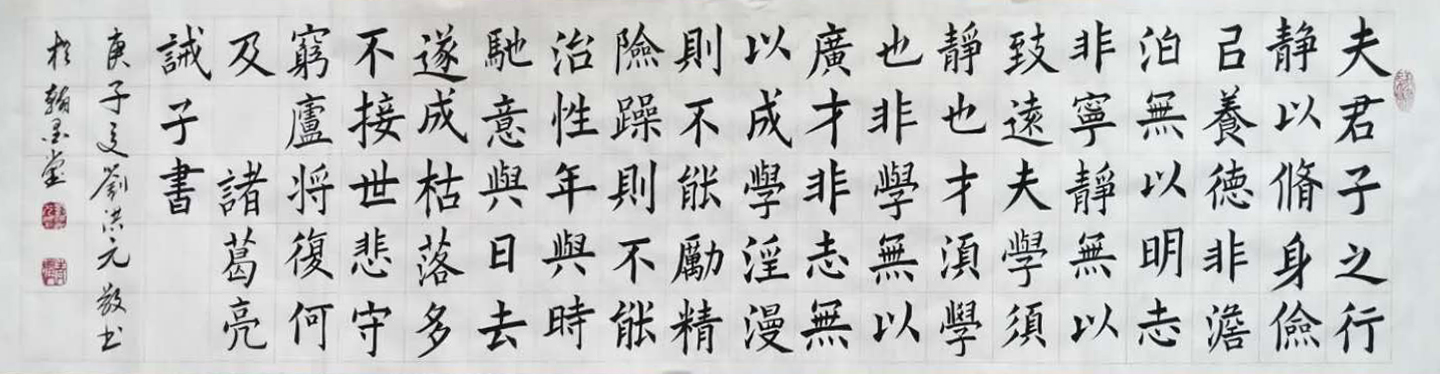 夫君子之行
静以脩身儉
以養德非澹
泊無以明志
非寧靜無以
致遠夫學須
靜也才須學
也非學無以
廣才非志無
以成學淫漫
則不能勵精
險躁則不能
治性年與時
馳意與日去
遂成枯落多
不接世悲守
窮廬將復何
及 諸葛亮
誡子書
庚子夏劉洪元敬书
於翰墨堂